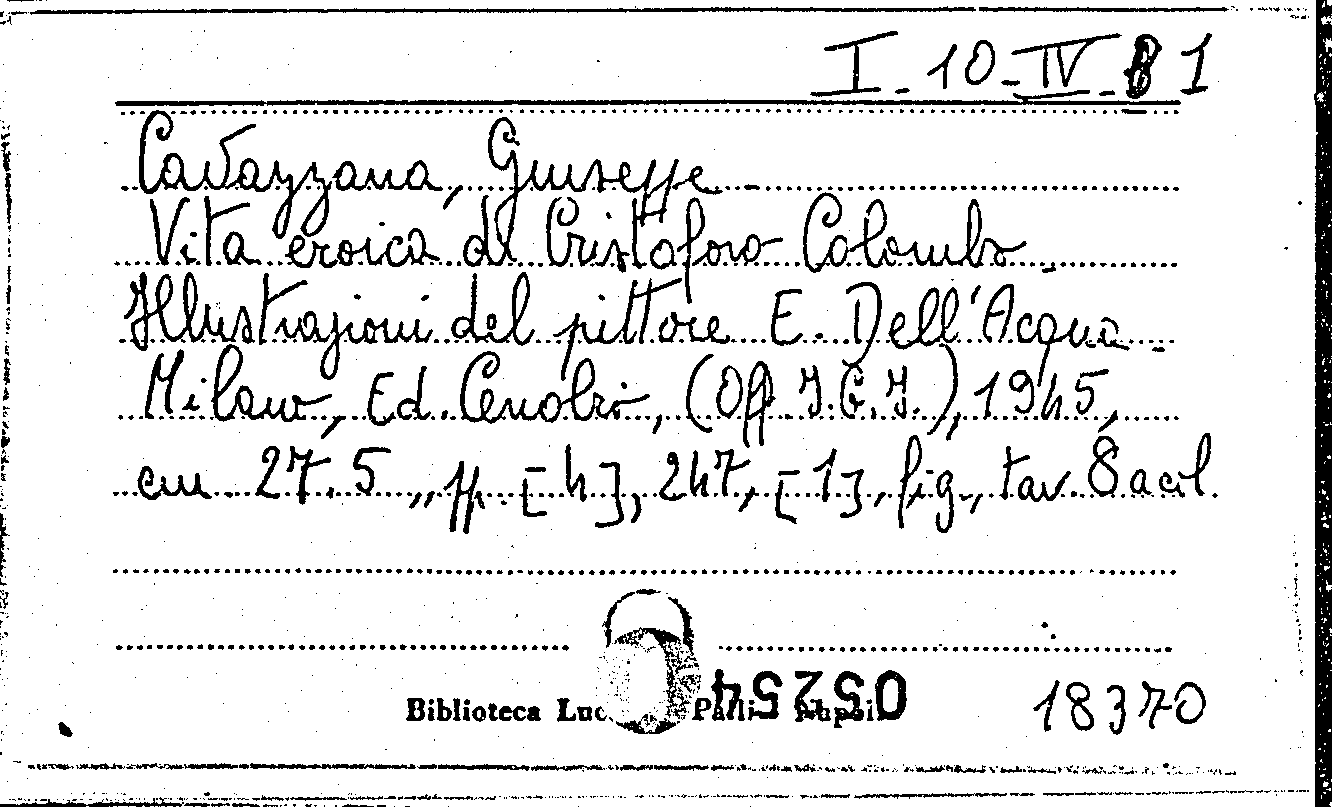 I - 10 - IV - 1
Cavazzana, Giuseppe -
Vita eroica di Cristoforo Colombo -
Illustrazioni del pittore E. Dell'Acqua -
Milano, Ed. Cenobio, (Off. I.G.I.), 1945,
cm 27.5, pp. [4], 247, [1], fig., tav. 8 a col.
Biblioteca
18370